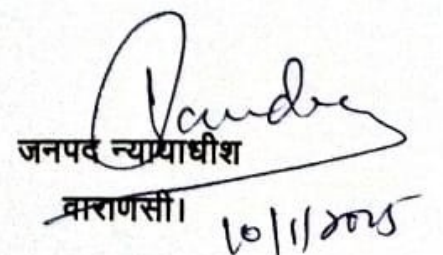 जनपद न्यायाधीश
वाराणसी।
10/1/2025